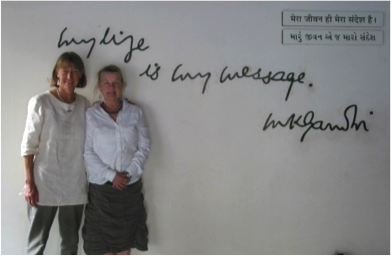 मेरा जीवन ही मेरा संदेश है।
મારું જીવન એ જ મારો સંદેશ
my life
is my message.
mkGandhi